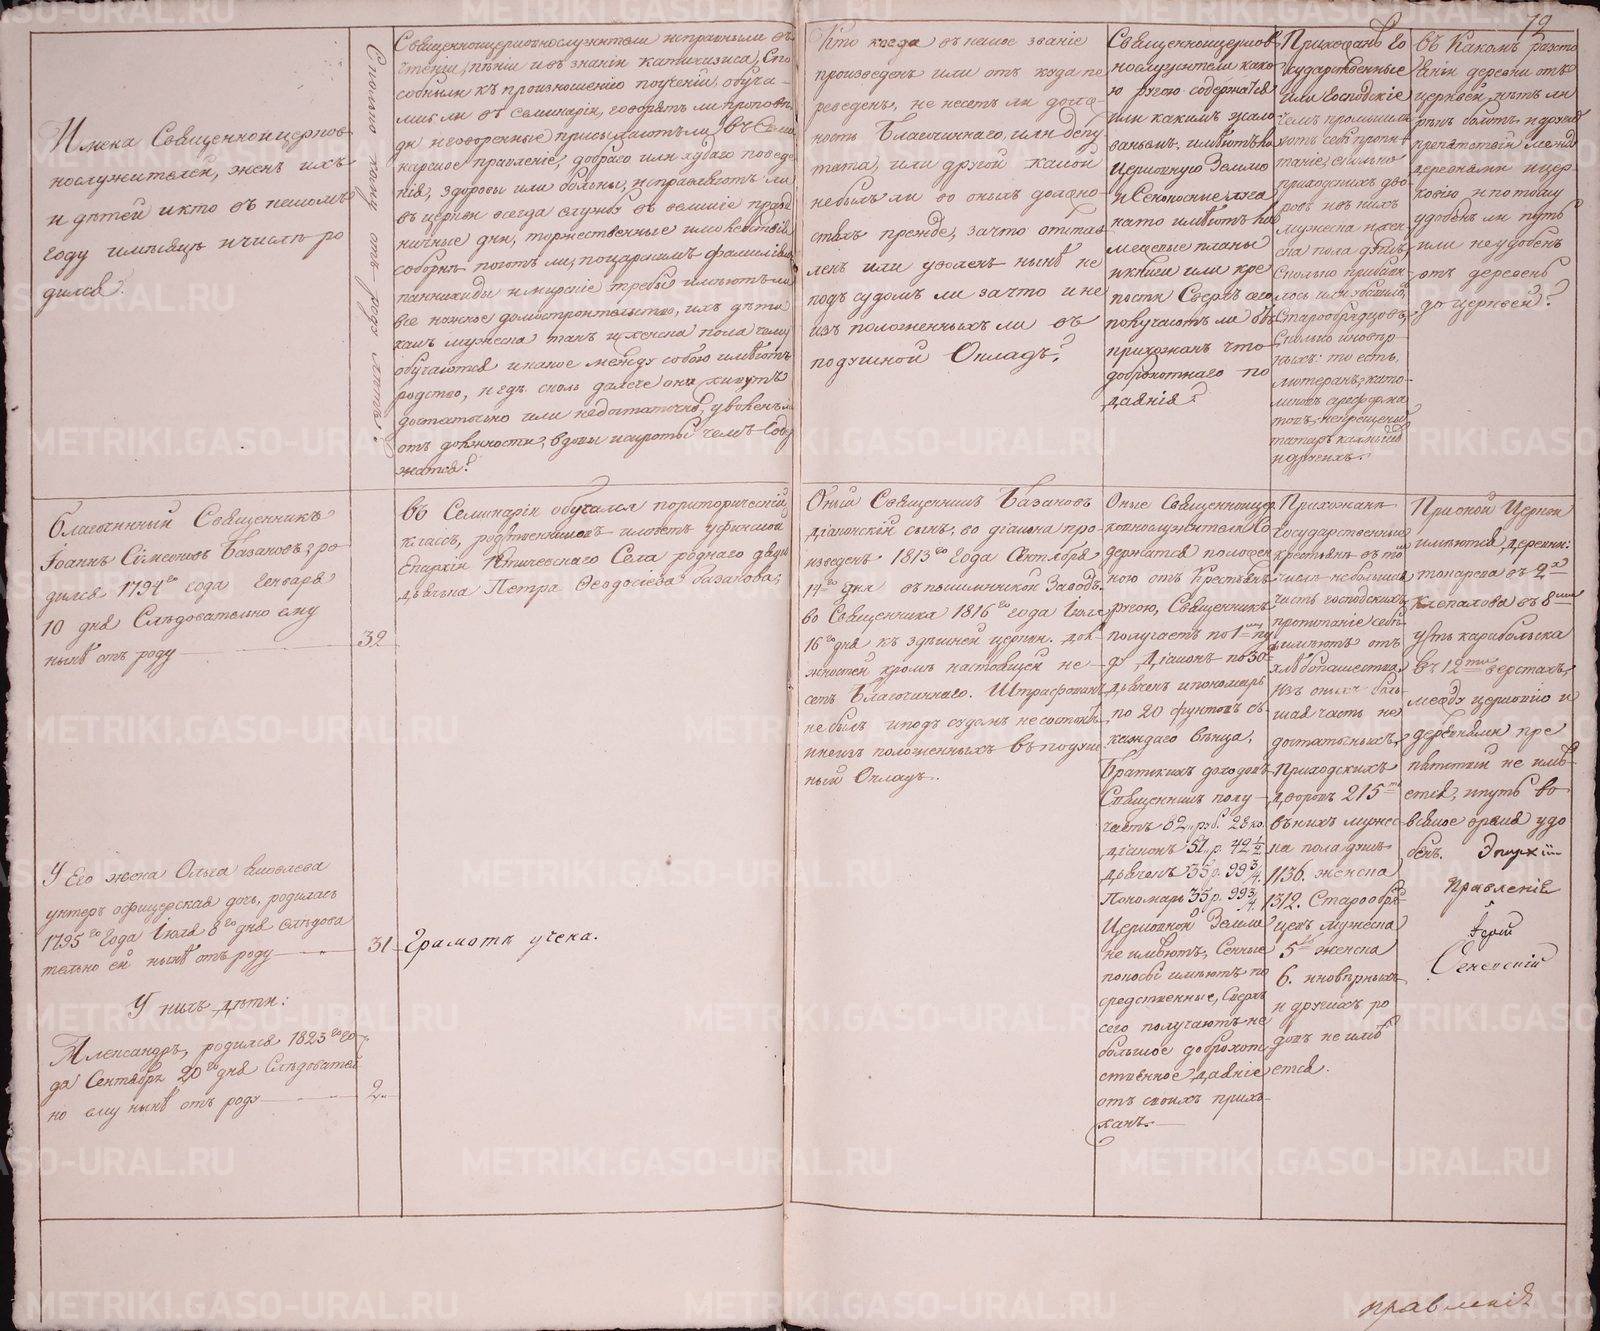 72
Имена Священноицерков
нослужителей, женъ ихъ
и дѣтей и кто въ которомъ
году имѣсяцѣ и числѣ ро
дился.
Сколько кому отъ роду лѣтъ?
Священноицерковнослужители исправныли въ
чтеніи, пѣніи и въ знаніи катихизиса, Спо
собныли къ произношенію поученій, обуча-
лись ли въ семинаріи, говорятъ ли проповѣ
ди и говоренные присылаютъ ли въ Семи
нарское правленіе, добраго или худаго поведе
нія, здоровы или больны, исправляютъ ли
въ церкви всегда службу въ великіе празд
ничные дни, торжественные и молебствія
соборнѣ поютъ ли, по царскимъ фамиліямъ
паннихиды и мирскіе требы имѣютъ ли
все нужное домостроительство, ихъ дѣти
какъ мужеска такъ и женска пола чему
обучаются и какое между собою имѣютъ
родство, и гдѣ сколь далече они живутъ
достаточно или недостаточно, уволенъ ли
отъ должности, вдовы и сироты чемъ Содер
жатся?
Кто когда въ нешое званіе
произведенъ или отъ куда пе
реведенъ, не несетъ ли долж-
ность Благочиннаго, или депу
тата, или другой какой
небылъ ли во оныхъ должно-
стяхъ прежде, за что отстав
ленъ или уволенъ нынѣ не
подъ судомъ ли за что и не
изъ положенныхъ ли въ
подушной Окладъ?
Священноицерков
нослужители како
ю ругою содержатся
или какимъ жало
ваньемъ, имѣютъ ли
Церковную Землю
и Сенокосные луга
на то имѣютъ ли
межевые планы
и книги или кре
пости Сверхъ сего
получаютъ ли отъ
прихожанъ что
доброхотнаго по
даянія?
Прихожанъ Го
сударственные
или Господскіе
чемъ промышля
ютъ себѣ пропи
таніе, сколько
приходскихъ дво
ровъ и въ нихъ
мужеска и жен
ска пола душъ,
Сколько прибави
лось или убавило,
Старообрядцовъ,
Сколько иновѣр
ныхъ: то есть,
лютеранъ, като-
ликовъ, реформа
товъ, некрещеныхъ
татаръ, калмыковъ
и другихъ.
въ Какомъ разсто
яніи деревни отъ
церквей, нѣтъ ли
рѣкъ болотъ и другихъ
препятствій между
деревнями и цер
ковію и потому
удобенъ ли путь
или неудобенъ
отъ деревень
до церквей?
Благочинный Священникъ
Іоаннъ Сѵмеоновъ Базановъ, ро
дился 1794го года Генваря
10 дня Слѣдовательно ему
нынѣ отъ роду
32
въ Семинаріи обучался по риторической
классъ, родственниковъ имѣетъ Уфимской
Епархіи села роднаго дядю
дьячка Петра Ѳеодосіева Базанова,
Оный Священникъ Базановъ
діаконскій сынъ, во діакона про-
изведенъ 1813го Года Октября
14го дня въ пышминской Заводъ.
во Священника 1816го года Іюля
16го дня къ здѣшней церкви. дол
жностей кромѣ настоящей не
сетъ Благочиннаго. Штрафованъ
не былъ и подъ судомъ не состоитъ
и не изъ положенныхъ въ подуш
ный Окладъ.
Оные Священноицер
ковнослужители Со
держатся положен
ною отъ Крестьянъ
ругою, Священникъ
получаетъ по 1 му пу
ду Діаконъ по 30
дьячекъ и пономарь
по 20 фунтовъ съ
каждаго вѣнца,
Братскихъ доходовъ
Священникъ полу-
чаетъ 82 руб. 28 ко.
діаконъ 51 р. 42 1/2
дьячекъ 35 р. 99 3/4.
Пономарь 35 р. 99 3/4.
Церковной Земли
не имѣютъ, Сенные
покосы имѣютъ по
средственные, Сверхъ
сего получаютъ не
большое доброхот
ственное даяніе
отъ своихъ прихо-
жанъ.
Прихожана
Государственные
крестьяне въ томъ
числѣ небольшая
часть господскихъ,
пропитаніе себѣ
имѣютъ отъ
хлѣбопашества,
Изъ оныхъ боль-
шая часть не
достаточныхъ.
Приходскихъ
дворовъ 215ть
въ нихъ мужес
ка пола душъ
1136. женска
1312. Старообря-
цевъ мужеска
5 ть женска
6. иновѣрныхъ
и другихъ ро
довъ не имѣ
ется.
При оной Церкви
имѣются деревни:
токарева въ 2хъ
клепалова въ 8 ми
усть карабольска
въ 12ти верстахъ,
между церковію и
деревнями пре
пятствій не имѣ-
ется, и путь во
всякое время удо
бенъ.
правленія
У Его жена Ольга Яковлева
унтеръ офицерская дочь, родилась
1795го Года Іюля 8го дня Слѣдова
тельно ей нынѣ отъ роду
31
Грамотѣ учена.
У нихъ дѣти:
Александръ, родился 1823го го-
да Сентября 20го дня Слѣдователь
но ему нынѣ отъ роду
2.
правленія
METRIKI.GASO-URAL.RU